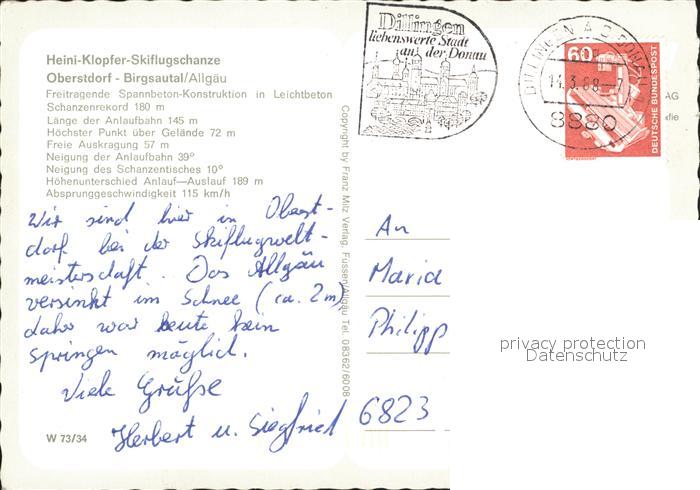 Heini-Klopfer-Skiflugschanze
Oberstdorf - Birgsautal/Allgäu
Freitragende Spannbeton-Konstruktion in Leichtbeton
Schanzenrekord 180 m
Länge der Anlaufbahn 145 m
Höchster Punkt über Gelände 72 m
Freie Auskragung 57 m
Neigung der Anlaufbahn 39°
Neigung des Schanzentisches 10°
Höhenunterschied Anlauf—Auslauf 189 m
Absprunggeschwindigkeit 115 km/h
Wir sind hier in Oberst-
dorf bei der Skiflugwelt-
meisterschaft. Das Allgäu
versinkt im Schnee (ca. 2m)
daher war heute kein
springen möglich.
Viele Grüße
Herbert u. Siegfried
W 73/34
Copyright by Franz Milz Verlag, Füssen/Allgäu Tel. 08362/6008
Dillingen
liebenswerte Stadt
an der Donau
DILLINGEN A D DONAU
14.3.88
8880
60
DEUTSCHE BUNDESPOST
AG
An
Maria
Philipp
6823
privacy protection
Datenschutz